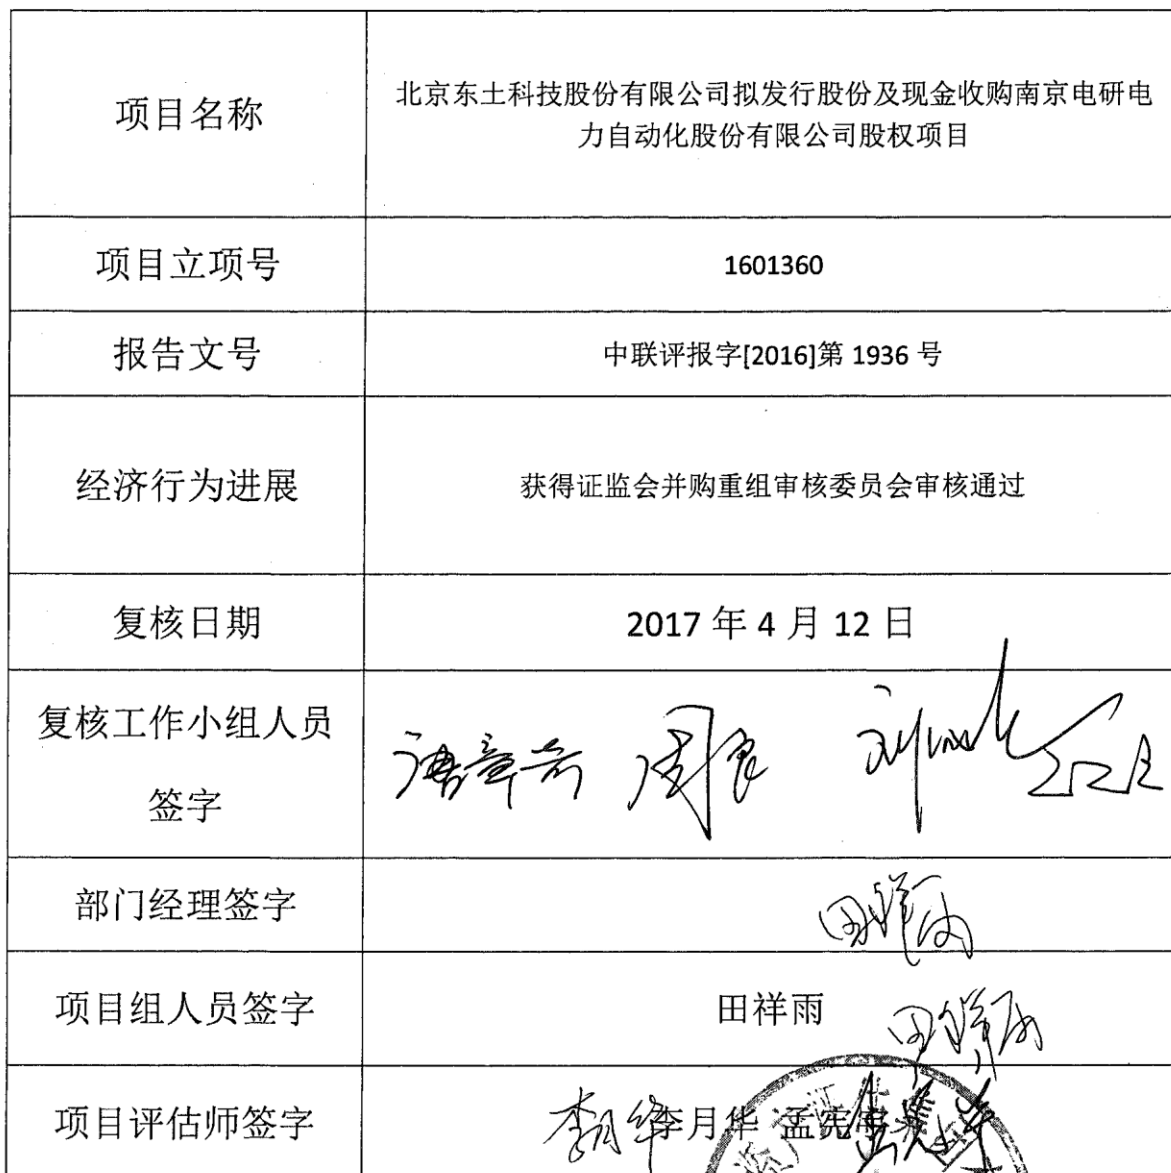 项目名称
北京东土科技股份有限公司拟发行股份及现金收购南京电研电
力自动化股份有限公司股权项目
项目立项号
1601360
报告文号
中联评报字[2016]第 1936 号
经济行为进展
获得证监会并购重组审核委员会审核通过
复核日期
2017 年 4 月 12 日
复核工作小组人员
签字
部门经理签字
田祥雨
项目组人员签字
田祥雨 田祥雨
项目评估师签字
李月华 李月华 孟宪